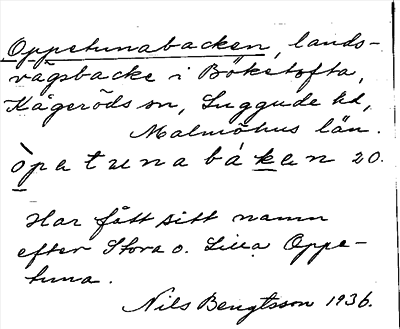 Oppetunabacken, lands-
vägsbacke i Bökestofta,
Kågeröds sn, Luggude hd,
Malmöhus län.
òpatunabákan 20.
Har fått sitt namn
efter Stora o. Lilla Oppe-
tuna.
Nils Bengtsson 1936.